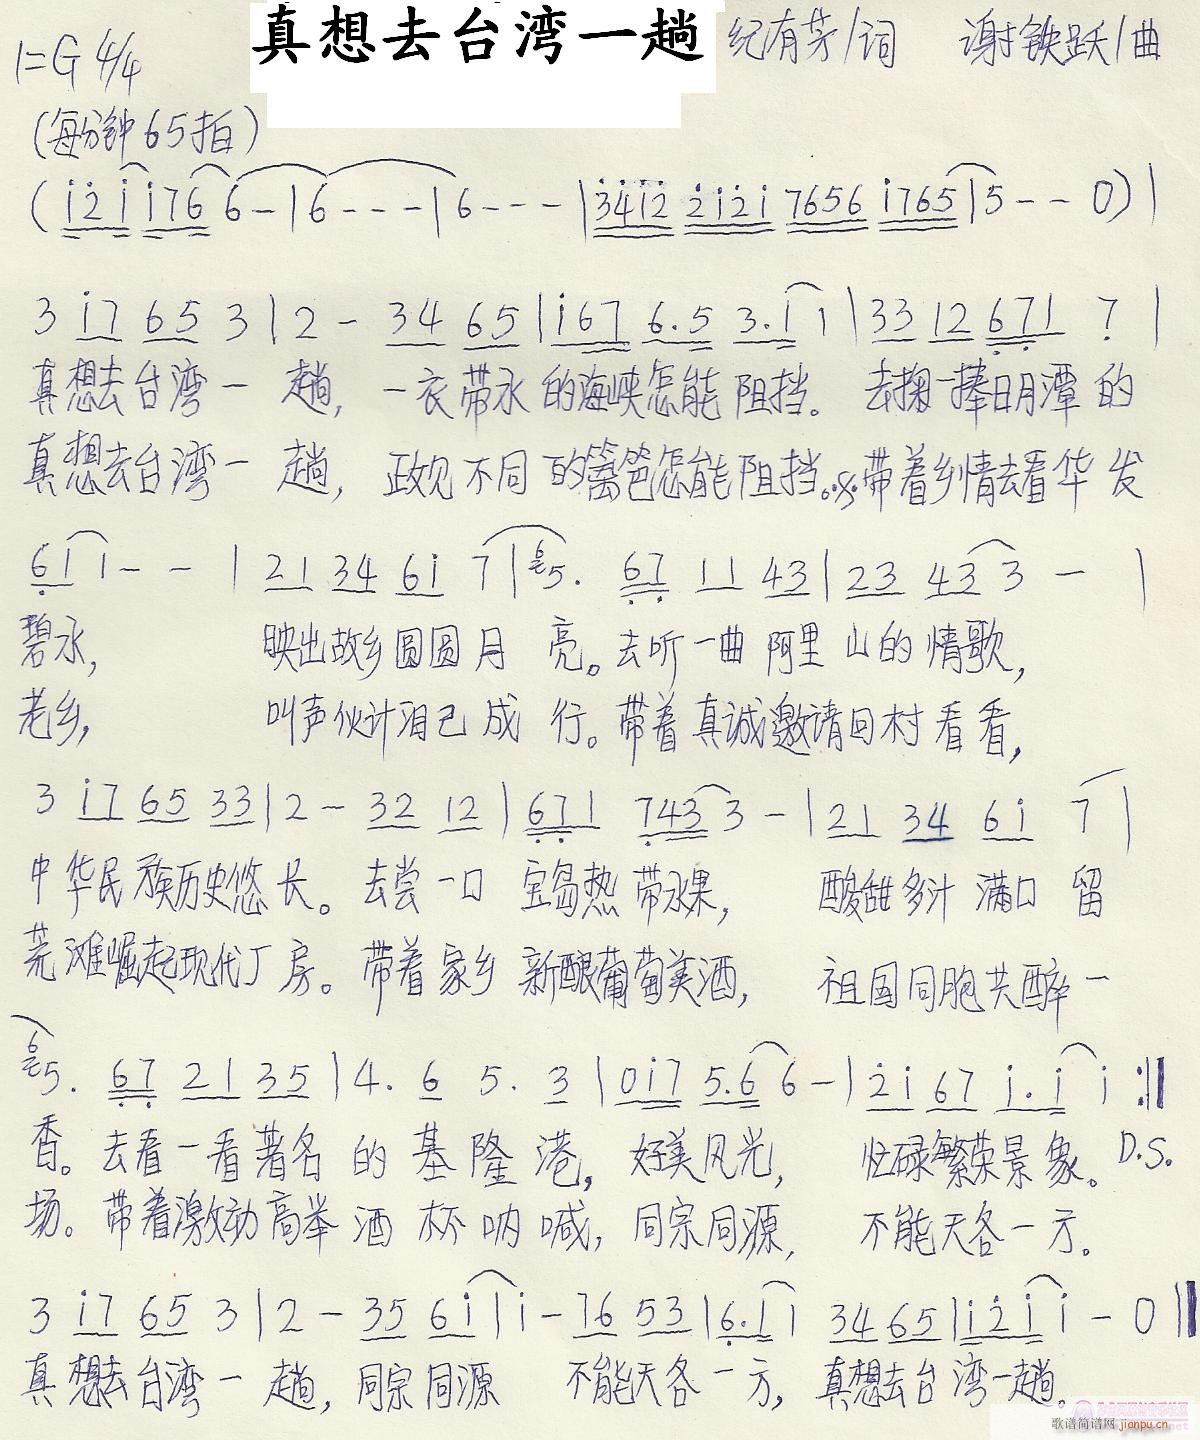 真想去台湾一趟 纪有芳/词 谢铁跃/曲
1=G 4/4
(每分钟65拍)
(i2i i176 6-|6---|6---|34i2 2i2i 7656 i765|5--0)|
3 i7 65 3|2- 34 65|i67 6.5 3.i i|33 12 671 7|
真想去台湾一 趟, 一衣带水的海峡怎能阻挡。 去掬一捧日月潭的
真想去台湾一 趟, 政见不同的篱笆怎能阻挡。带着乡情去看华发
61 1--|21 34 6i 7|5. 67 11 43|23 43 3-|
碧水, 映出故乡圆圆月 亮。去听一曲阿里山的情歌,
老乡, 叫声伙计泪已成 行。带着真诚邀请回村看看,
3 i7 65 33|2- 32 12|671 743 3-|21 34 6i 7|
中华民族历史悠长。去尝一口 宝岛热带水果, 酸甜多汁满口留
荒滩崛起现代厂房。带着家乡 新酿葡萄美酒, 祖国同胞共醉一
65. 67 21 35|4. 6 5. 3|0i7 5.6 6-|2i 67 i.i i:||
香。去看一看著名的基隆港, 好美风光, 忙碌繁荣景象。D.S.
场。带着激动高举酒杯呐喊, 同宗同源, 不能天各一方。
3 i7 65 3|2- 35 6i|i- 76 53|6.1 1 34 65|i2i i-0||
真想去台湾一 趟, 同宗同源 不能天各一方, 真想去台湾一趟。
歌谱简谱网 jianpu.cn